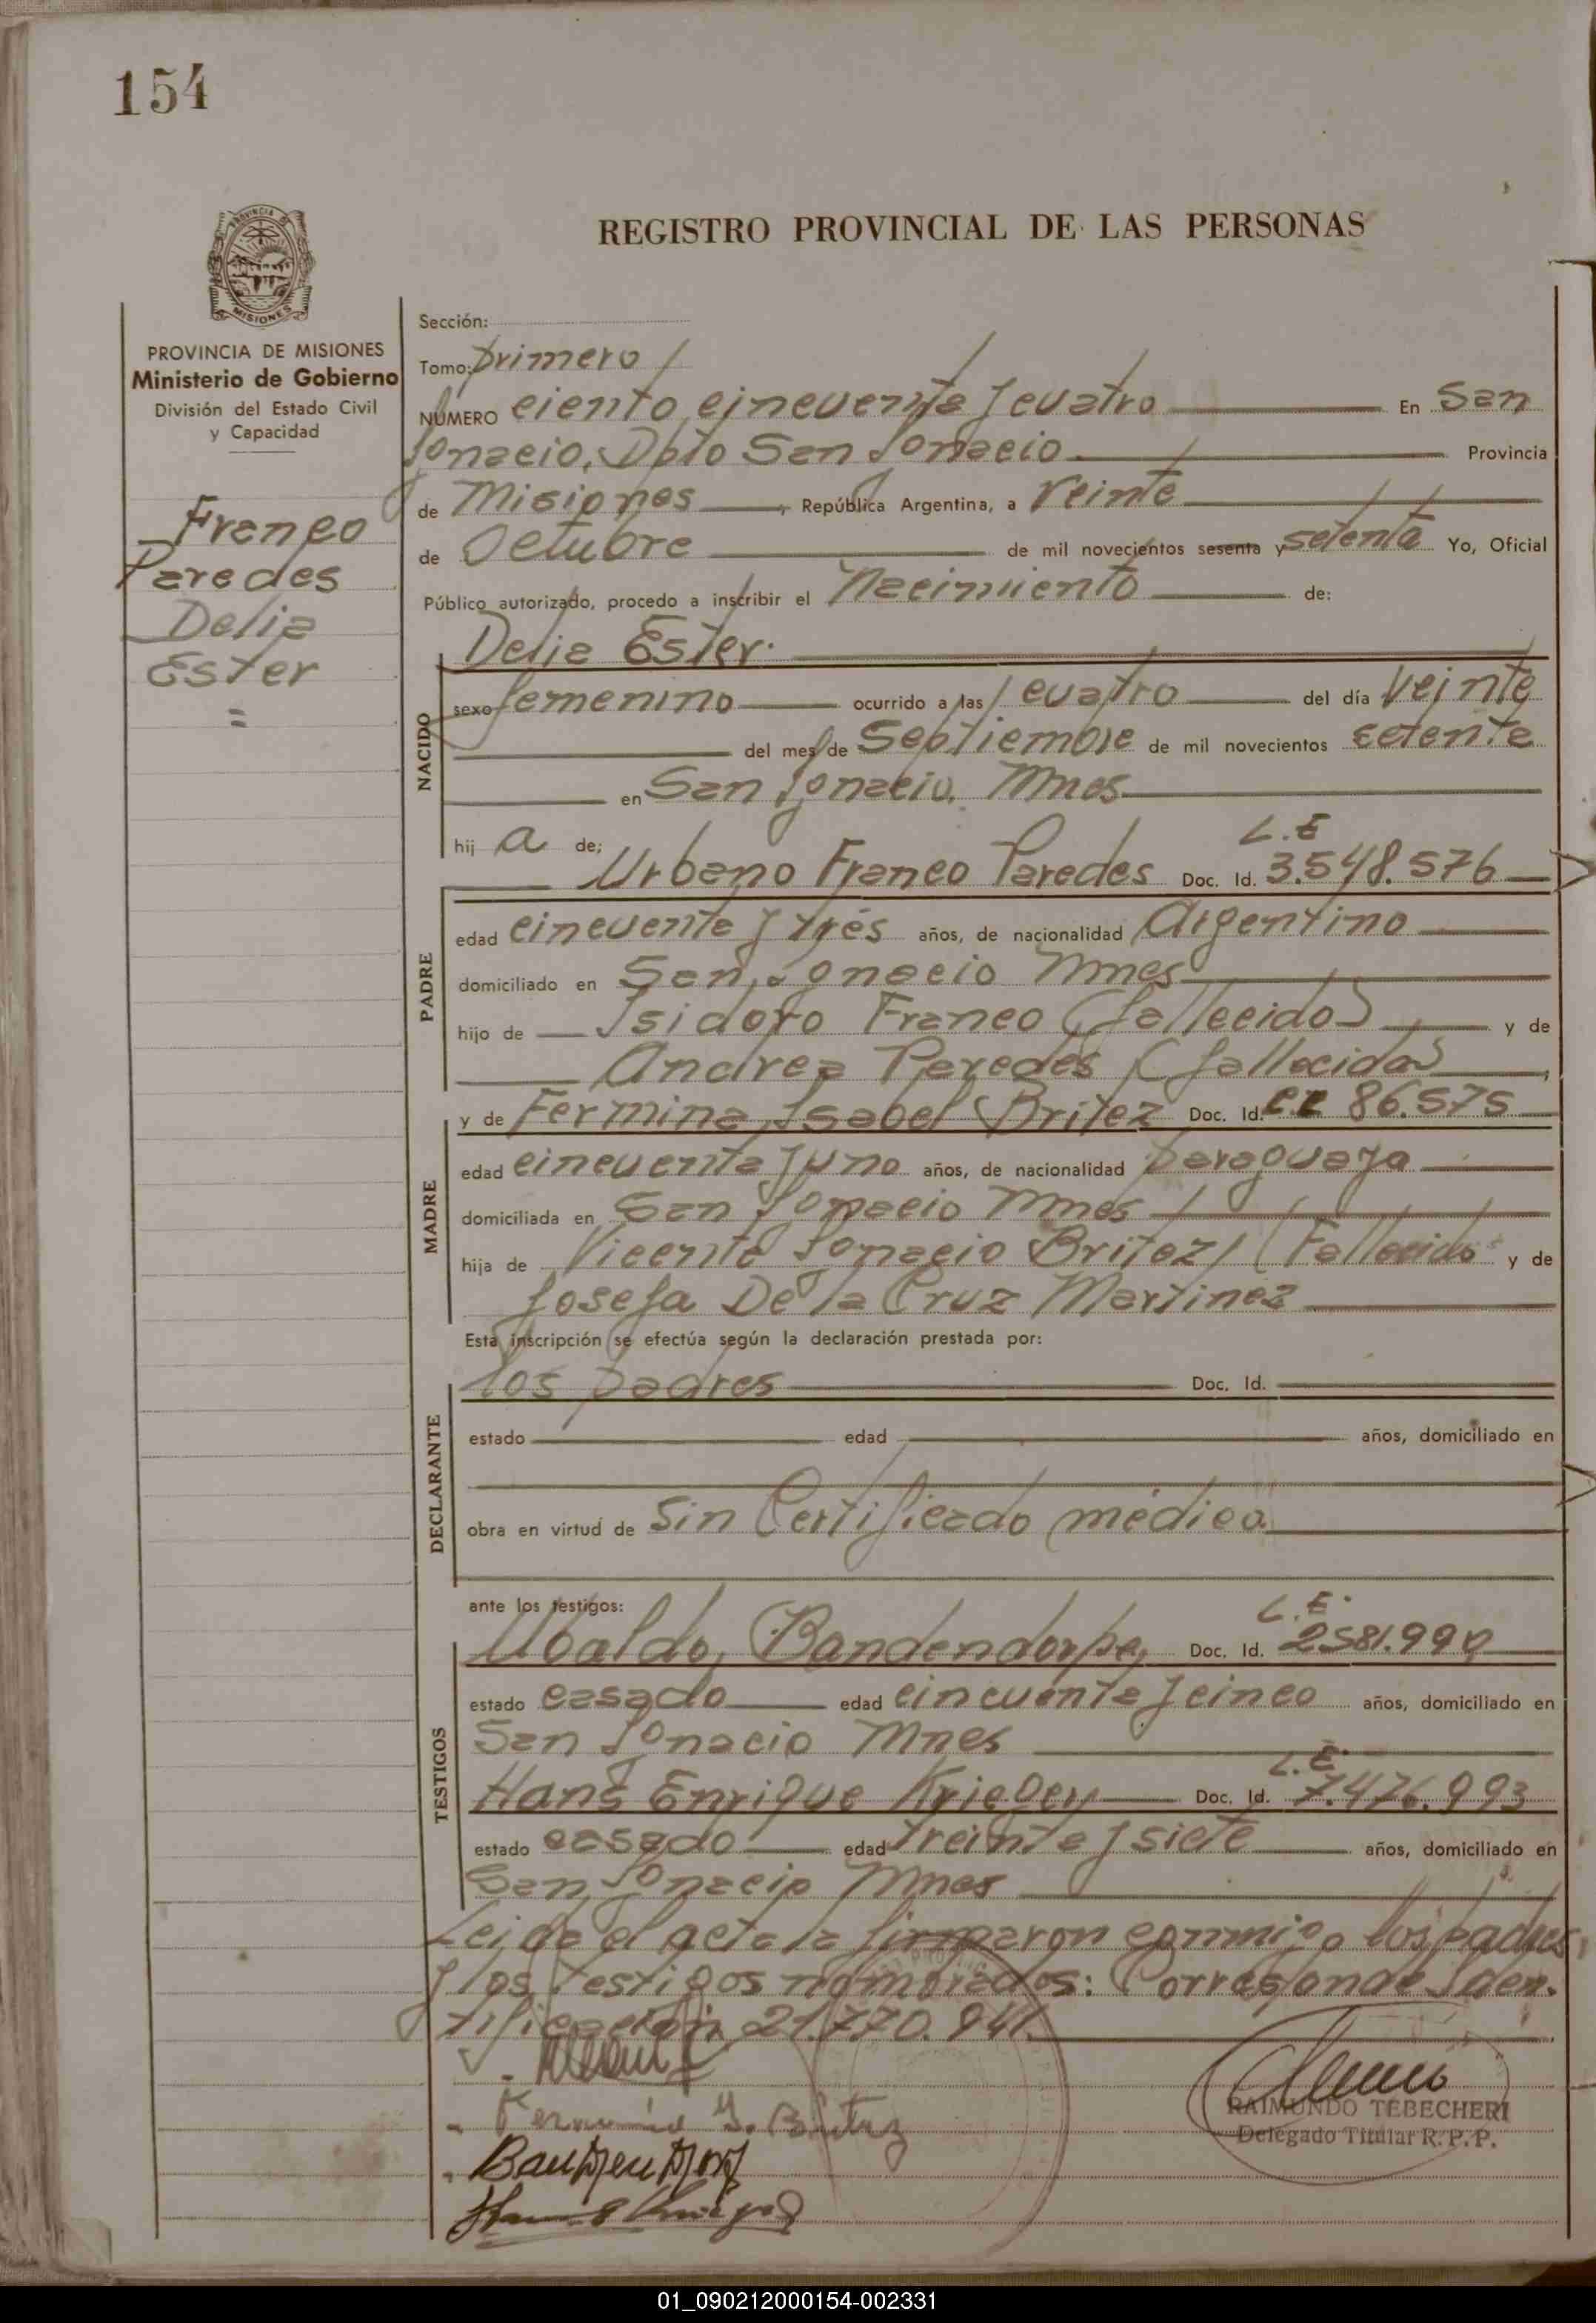 154
REGISTRO PROVINCIAL DE LAS PERSONAS
PROVINCIA DE
MISIONES
PROVINCIA DE MISIONES
Ministerio de Gobierno
División del Estado Civil
y Capacidad
Franco
Paredes
Delia
Ester
=
Sección:
Tomo: primero
NÚMERO ciento cincuenta y cuatro En San
Ignacio, Dpto San Ignacio Provincia
de Misiones, República Argentina, a Veinte
de Octubre de mil novecientos sesenta y setenta Yo, Oficial
Público autorizado, procedo a inscribir el Nacimiento de:
Delia Ester.
NACIDO
sexo femenino ocurrido a las cuatro del día veinte
del mes de Septiembre de mil novecientos setenta
en San Ignacio, Mnes
hij a de;
L.E
Urbano Franco Paredes Doc. Id. 3.548.576
PADRE
edad cincuenta y trés años, de nacionalidad Argentino
domiciliado en San Ignacio Mnes
hijo de Isidoro Franco (fallecido) y de
Andrea Paredes (fallecida),
y de Fermina Isabel Britez Doc. Id. 86.575
MADRE
edad cincuenta y uno años, de nacionalidad paraguaya
domiciliada en San Ignacio Mnes
hija de Vicente Ignacio Britez (Fallecido y de
Josefa De la Cruz Martinez
Esta inscripción se efectúa según la declaración prestada por:
los padres Doc. Id.
DECLARANTE
estado edad años, domiciliado en
obra en virtud de Sin Certificado médico
ante los testigos:
L.E.
Ubaldo Bandendorpe Doc. Id. 2581.990
TESTIGOS
estado casado edad cincuenta y cinco años, domiciliado en
San Ignacio Mnes
L.E.
Hans Enrique Krieger Doc. Id. 7.476.993
estado casado edad treinta y siete años, domiciliado en
San Ignacio Mnes
Leida el acta la firmaron conmigo los padres,
y los testigos nombrados: Corresponde Iden.
tificación 21.770.941.
Fermina Y. Britez
RAIMUNDO TEBECHERI
Delegado Titular R.P.P.
01_090212000154-002331